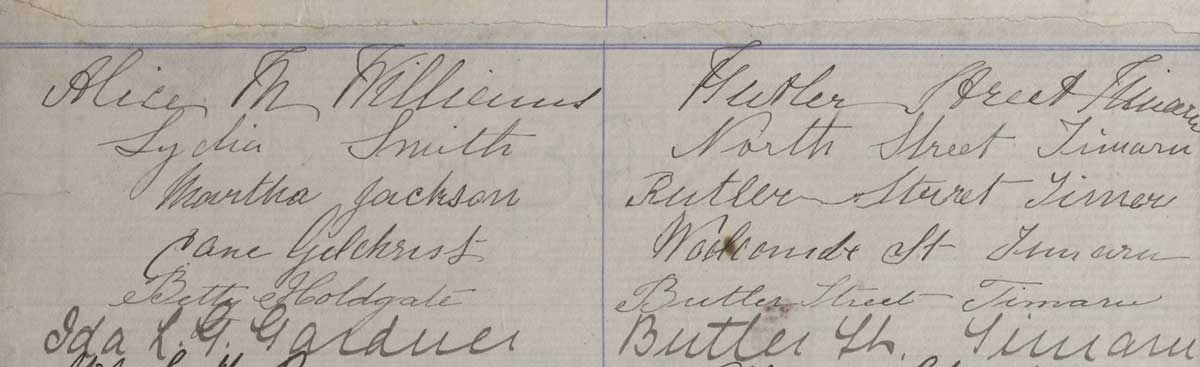 Alice M Williams Hutler Street Timaru
Lydia Smith North Street Timaru
Martha Jackson Rutler Sturet Timer
Jane Gilchrist Wodcombe St Timaru
Betty Holdgate Butler Street Timaru
Ida L. G. Gardner Butler St. Timaru